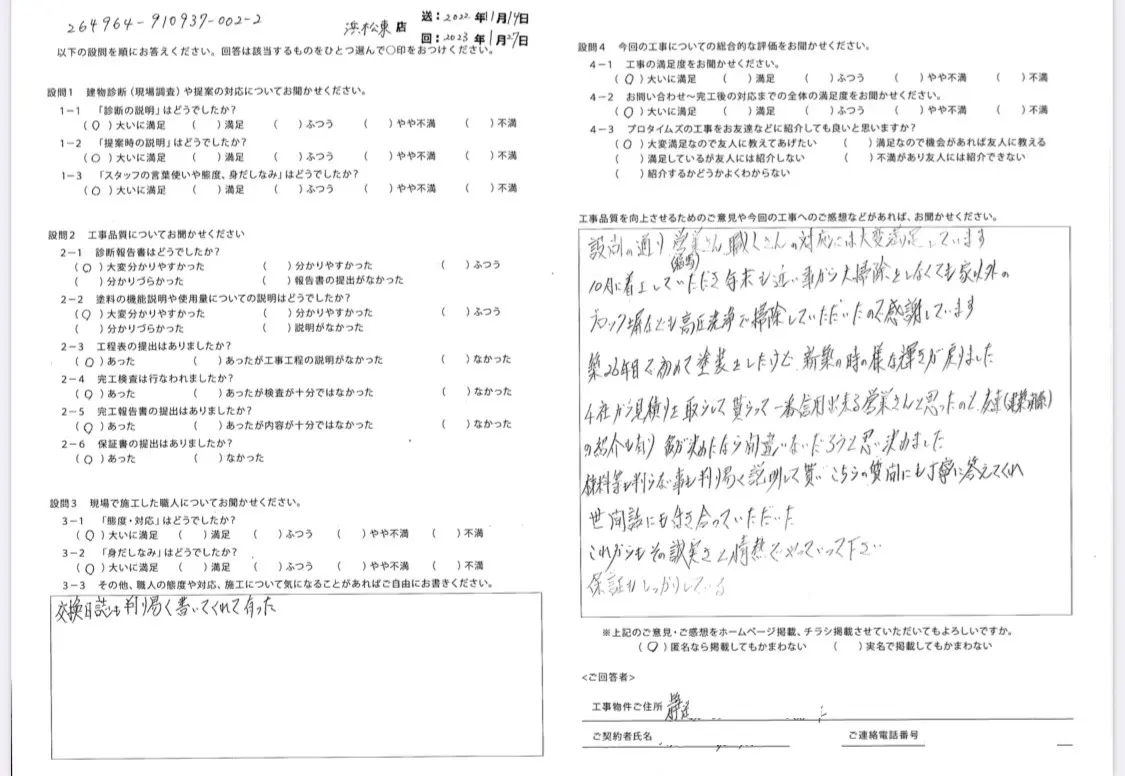 264964-910937-002-2
浜松東店
送：2022年11月14日
回：2023年1月27日
以下の設問を順にお答えください。回答は該当するものをひとつ選んで○印をおつけください。
設問1 建物診断（現場調査）や提案の対応についてお聞かせください。
1-1 「診断の説明」はどうでしたか?
（○）大いに満足 （ ）満足 （ ）ふつう （ ）やや不満 （ ）不満
1-2 「提案時の説明」はどうでしたか?
（○）大いに満足 （ ）満足 （ ）ふつう （ ）やや不満 （ ）不満
1-3 「スタッフの言葉使いや態度、身だしなみ」はどうでしたか?
（○）大いに満足 （ ）満足 （ ）ふつう （ ）やや不満 （ ）不満
設問2 工事品質についてお聞かせください
2-1 診断報告書はどうでしたか?
（○）大変分かりやすかった （ ）分かりやすかった （ ）ふつう
（ ）分かりづらかった （ ）報告書の提出がなかった
2-2 塗料の機能説明や使用量についての説明はどうでしたか?
（○）大変分かりやすかった （ ）分かりやすかった （ ）ふつう
（ ）分かりづらかった （ ）説明がなかった
2-3 工程表の提出はありましたか?
（○）あった （ ）あったが工事工程の説明がなかった （ ）なかった
2-4 完工検査は行なわれましたか?
（○）あった （ ）あったが検査が十分ではなかった （ ）なかった
2-5 完工報告書の提出はありましたか?
（○）あった （ ）あったが内容が十分ではなかった （ ）なかった
2-6 保証書の提出はありましたか?
（○）あった （ ）なかった
設問3 現場で施工した職人についてお聞かせください。
3-1 「態度・対応」はどうでしたか?
（○）大いに満足 （ ）満足 （ ）ふつう （ ）やや不満 （ ）不満
3-2 「身だしなみ」はどうでしたか?
（○）大いに満足 （ ）満足 （ ）ふつう （ ）やや不満 （ ）不満
3-3 その他、職人の態度や対応、施工について気になることがあればご自由にお書きください。
交換日誌も判り易く書いてくれて有った
設問4 今回の工事についての総合的な評価をお聞かせください。
4-1 工事の満足度をお聞かせください。
（○）大いに満足 （ ）満足 （ ）ふつう （ ）やや不満 （ ）不満
4-2 お問い合わせ～完工後の対応までの全体の満足度をお聞かせください。
（○）大いに満足 （ ）満足 （ ）ふつう （ ）やや不満 （ ）不満
4-3 プロタイムズの工事をお友達などに紹介しても良いと思いますか?
（○）大変満足なので友人に教えてあげたい （ ）満足なので機会があれば友人に教える
（ ）満足しているが友人には紹介しない （ ）不満があり友人には紹介できない
（ ）紹介するかどうかよくわからない
工事品質を向上させるためのご意見や今回の工事へのご感想などがあれば、お聞かせください。
設問の通り営業さん、職人さんの対応には大変満足しています
10月に着工していただき年末も近い事から大掃除をしなくても家以外の
ブロック塀なども高圧洗浄で掃除していただいたので感謝しています
築26年目で初めて塗装をしたけど新築の時の様な輝きが戻りました
4社から見積りを取らして貰らって一番信用出来る営業さんと思ったので、友達
の紹介も有り 私が決めたなら間違いないだろうと思い決めました
材料等も判らない事も判り易く説明して貰い こちらの質問にも丁寧に答えてくれ
世間話にも付き合っていただいた
これからもその誠実さと情熱でやっていって下さい
保証もしっかりしている
※上記のご意見・ご感想をホームページ掲載、チラシ掲載させていただいてもよろしいですか。
（○）匿名なら掲載してもかまわない （ ）実名で掲載してもかまわない
<ご回答者>
工事物件ご住所
ご契約者氏名 ご連絡電話番号